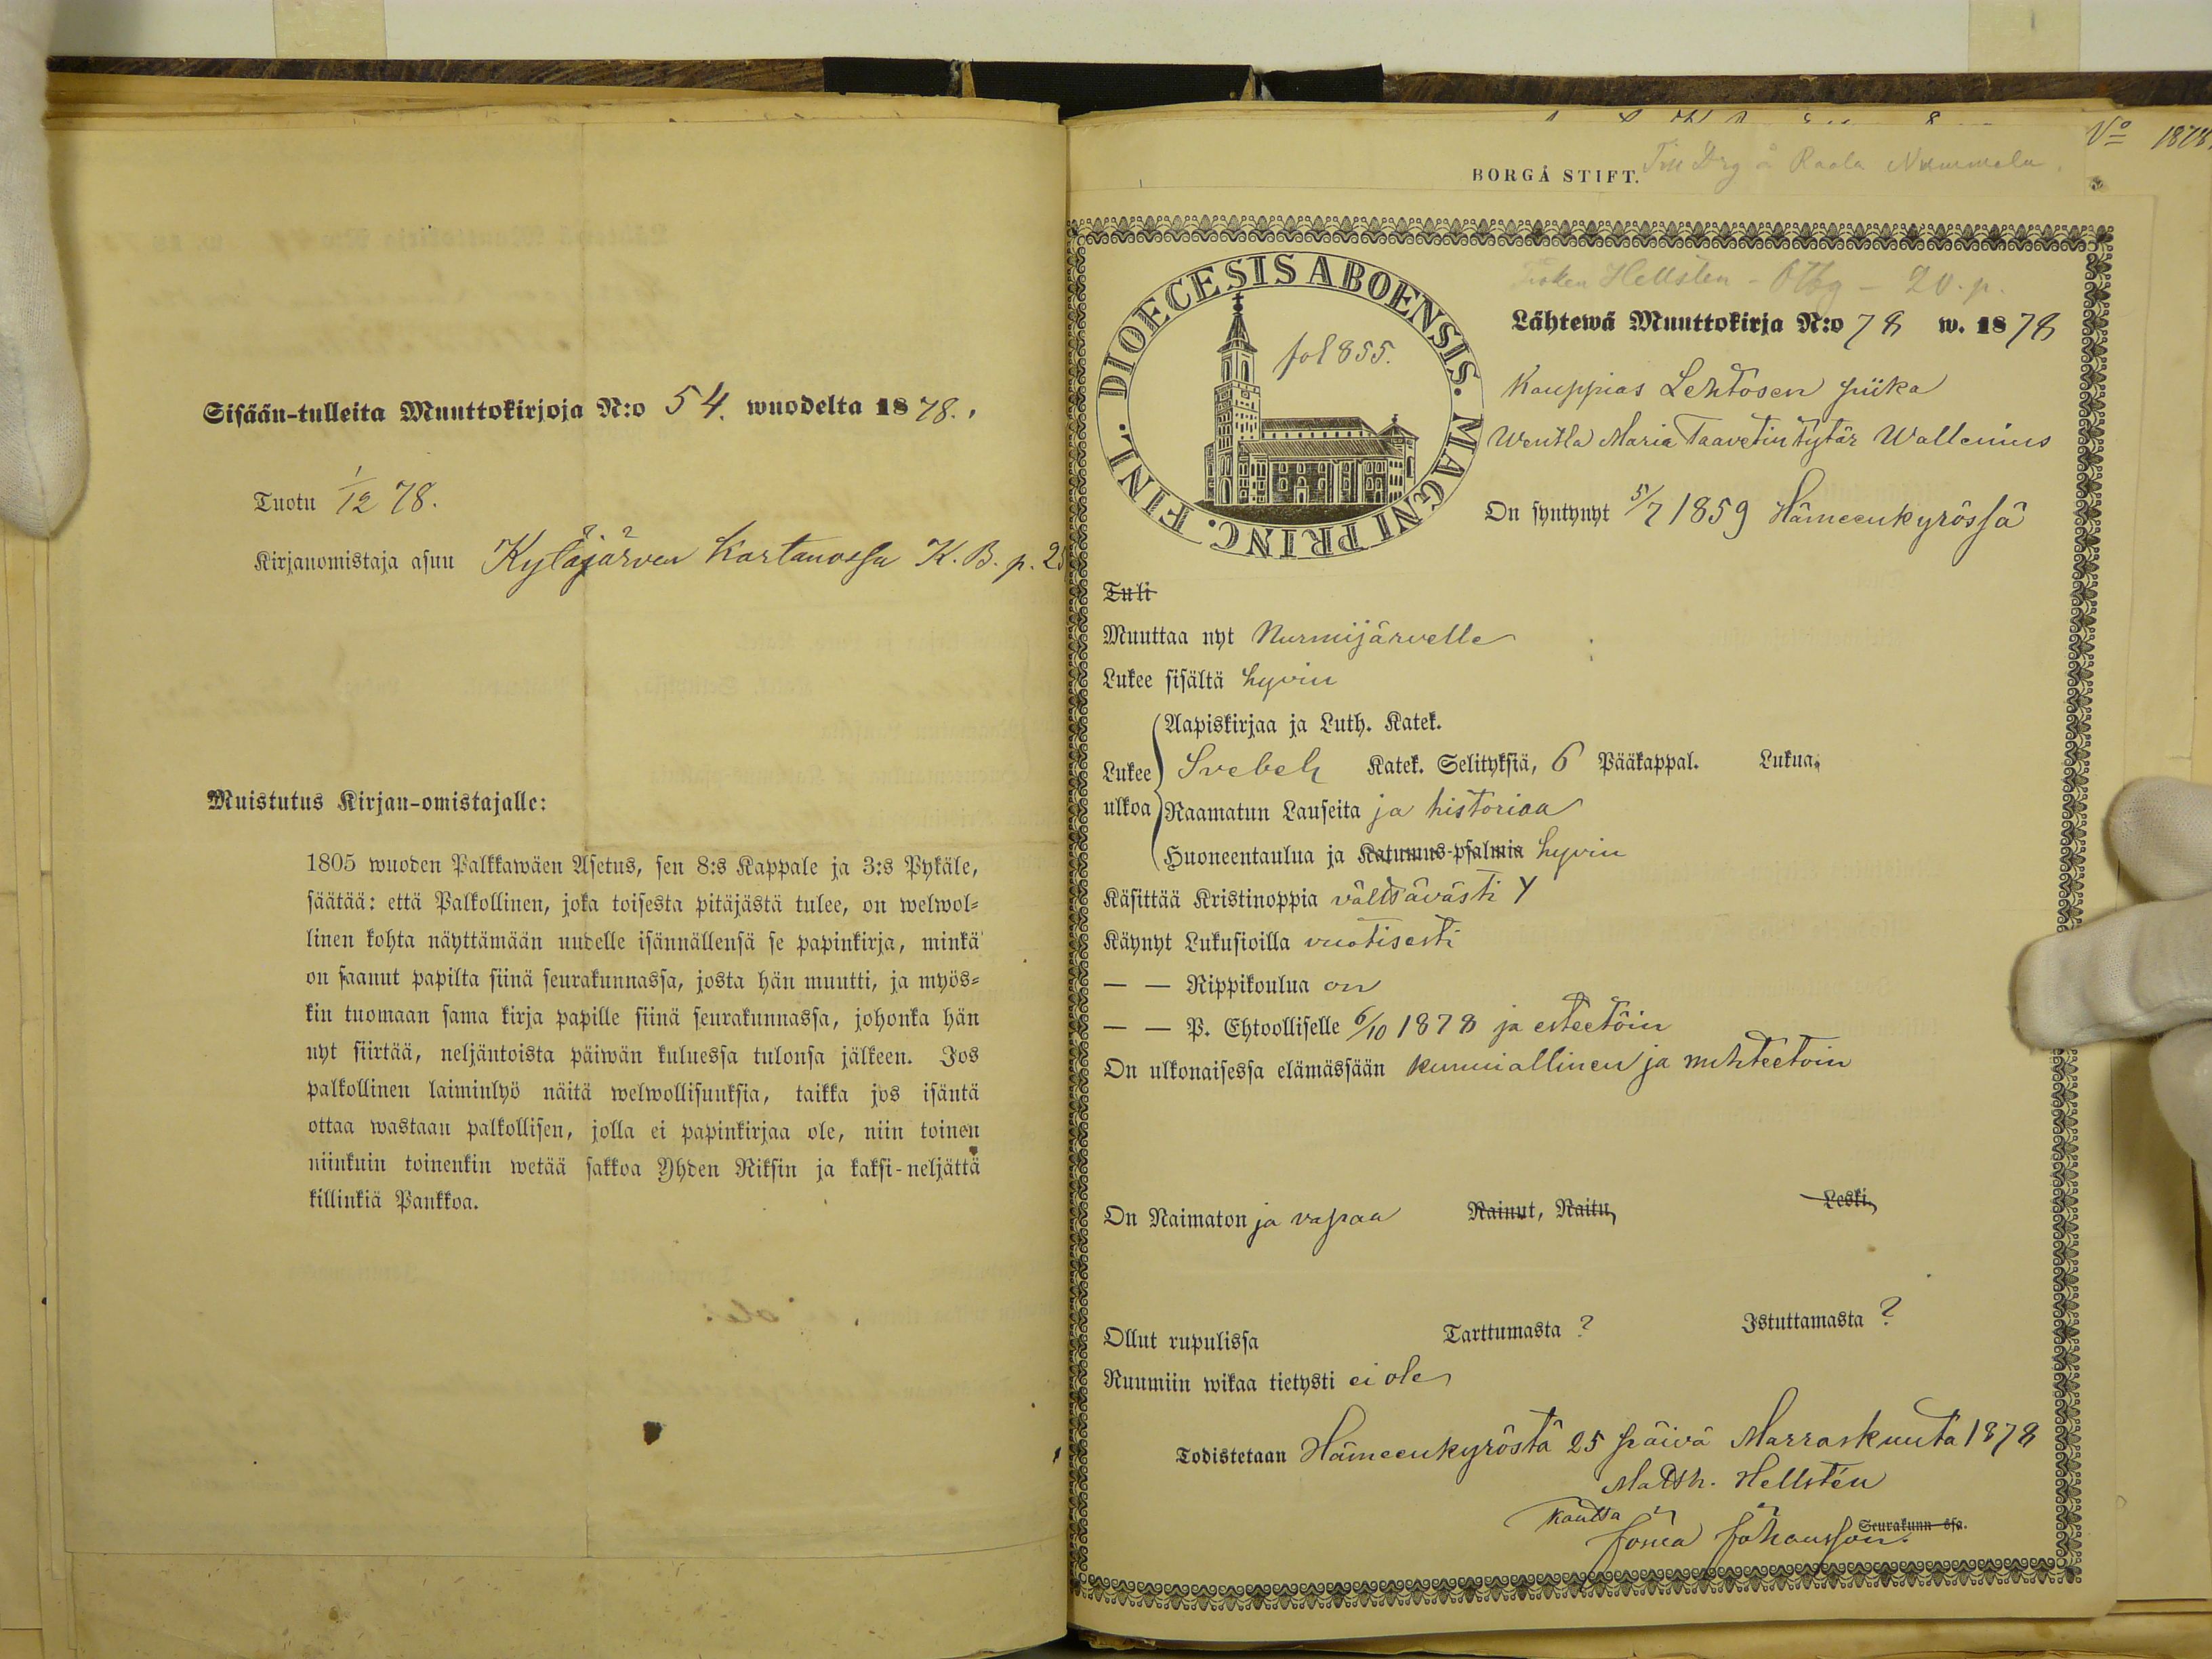 Sisään-tulleita Muuttokirjoja N:o 54. wuodelta 1878.
Tuotu 1/12 78.
Kirjanomistaja asuu Kyläjärven Kartanossa K. B. p. 2
Muistutus Kirjan-omistajalle:
1805 wuoden Palkkawäen Asetus, sen 8:s Kappale ja 3:s Pykäle,
säätää: että Palkollinen, joka toisesta pitäjästä tulee, on welwol=
linen kohta näyttämään uudelle isännällensä se papinkirja, minkä
on saanut papilta siinä seurakunnassa, josta hän muutti, ja myös=
kin tuomaan sama kirja papille siinä seurakunnassa, johonka hän
nyt siirtää, neljäntoista päiwän kuluessa tulonsa jälkeen. Jos
palkollinen laiminlyö näitä welwollisuuksia, taikka jos isäntä
ottaa wastaan palkollisen, jolla ei papinkirjaa ole, niin toinen
niinkuin toinenkin wetää sakkoa Yhden Riksin ja kaksi-neljättä
killinkiä Pankkoa.
No 1878.
BORGÅ STIFT. Till Drg å Raala Nummela.
Hellsten - 20. p.
DIOECESIS ABOENSIS. MAGNI PRINC. FINL.
fol 855.
Lähtewä Muuttokirja N:o 78 w. 1878
Kauppias Lehtosen piika
Wentla Maria Taavetin tytär Wallenius
On syntynyt 5/7 1859 Hämeenkyrössä
Tuli
Muuttaa nyt Nurmijärvelle
Lukee sisältä hyvin
Aapiskirjaa ja Luth. Katek.
Lukee Svebeh Katek. Selityksiä, 6 Pääkappal. Lukua,
ulkoa Raamatun Lauseita ja historiaa
Huoneentaulua ja Katumus-psalmia hyvin
Käsittää Kristinoppia välttävästi
Käynyt Lukusioilla vuotisesti
— — Rippikoulua on
— — P. Ehtoolliselle 6/10 1878 ja esteetöin
On ulkonaisessa elämässään kunniallinen ja nuhteetoin
On Naimaton ja vapaa Nainut, Naitu, Leski,
Ollut rupulissa Tarttumasta ? Istuttamasta ?
Ruumiin wikaa tietysti ei ole
Todistetaan Hämeenkyröstä 25 päivä Marraskuuta 1878
Matth. Hellstén
Kautta
Seurakunn ssa.
Johansson.